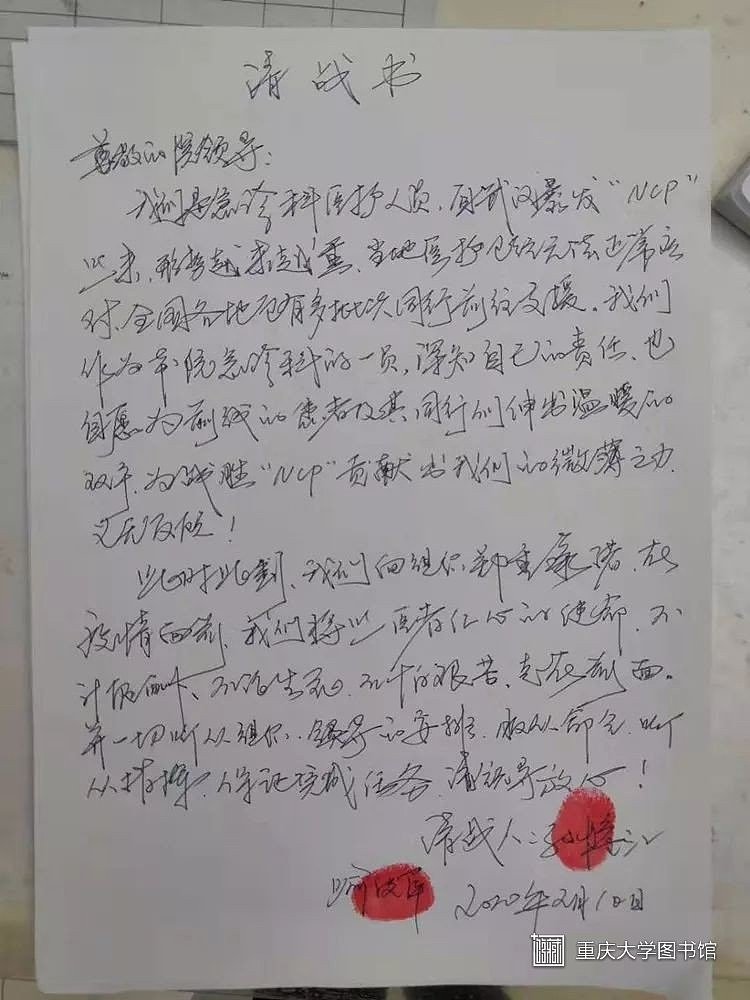 请战书
尊敬的院领导：
我们是急诊科医护人员，自武汉爆发“NCP”
以来，形势越来越重，当地医护已经无法正常应
对，全国各地已有多批次同行前往支援。我们
作为本院急诊科的一员，深知自己的责任，也
自愿为前线的患者及其同行们伸出温暖的
双手，为战胜“NCP”贡献出我们的微薄之力，
义无反顾！
此时此刻，我们向组织郑重承诺：在
疫情面前，我们将以医者仁心的使命，不
计报酬、不论生死、不计较艰苦，走在前面。
并一切听从组织、领导的安排，服从命令，听
从指挥，保证完成任务，请领导放心！
请战人：
2020年2月10日
重庆大学图书馆